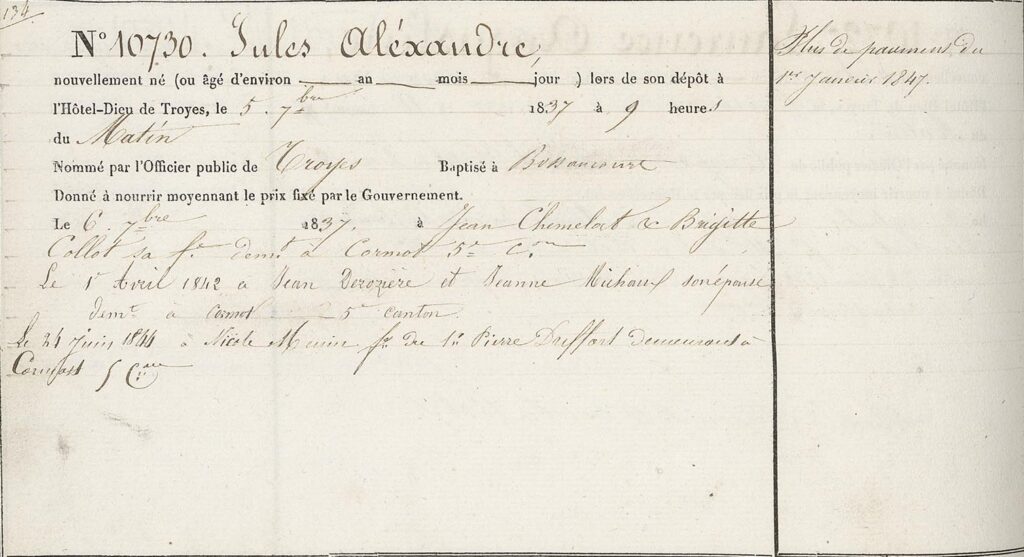 134.
N° 10730. Jules Aléxandre,
nouvellement né (ou âgé d'environ an mois jour ) lors de son dépôt à
l'Hôtel-Dieu de Troyes, le 5. 7bre 1837 à 9 heures
du Matin
Nommé par l'Officier public de Troyes Baptisé à Bossancourt
Donné à nourrir moyennant le prix fixé par le Gouvernement.
Le 6. 7bre 1837. à Jean Chemelat & Brigitte
Collot sa fe. demt. à Cormot 5e Con
Le 1er Avril 1842 a Jean Derozière et Jeanne Michaut son épouse
demt. à cormot 5e canton.
Le 24 juin 1844 à fe. de Pierre Duffort demeurant à
Cormost 5 Con
Plus de paiement du
1er Janvier 1847.